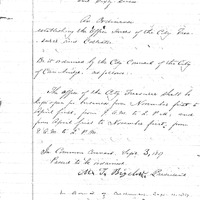 An Ordinance
establishing the Office Hours of the City Treas-
urer and Collector.
Be it ordained by the City Council of the City
of Cambridge, as follows:
The office of the City Treasurer shall be
kept open for business from November first to
April first, from 9 A.M. to 2 P.M., and
from April first to November first, from
8 A.M. to 2 P.M.
In Common Council, Sept. 3, 189
Passed to be ordained.
President